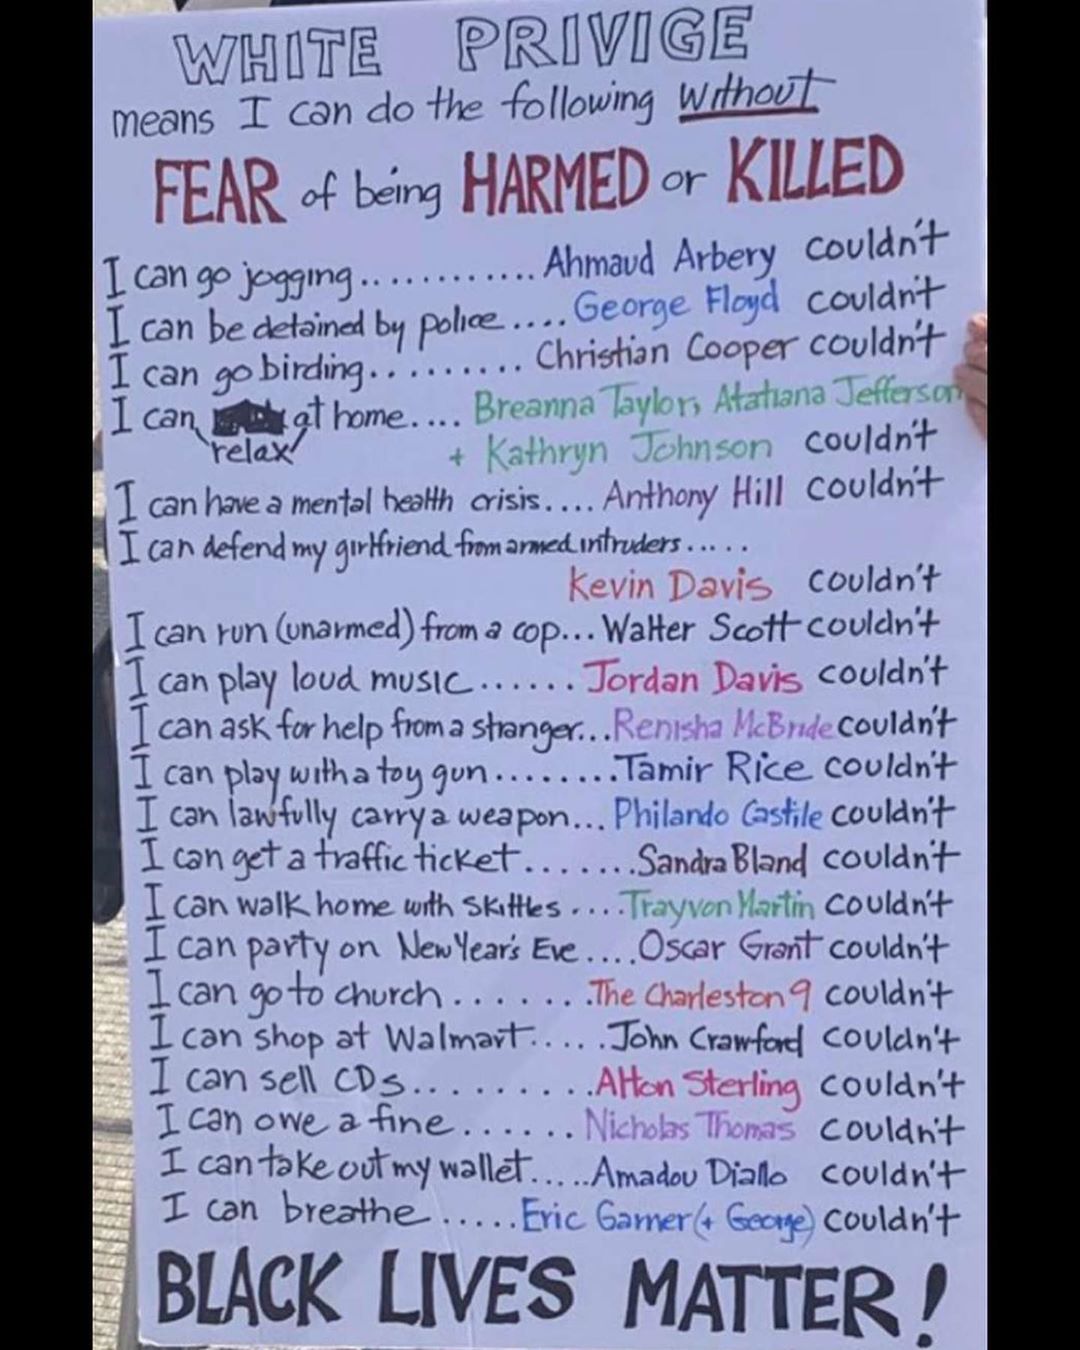 WHITE PRIVIGE
means I can do the following without
FEAR of being HARMED or KILLED
I can go jogging............ Ahmaud Arbery couldn't
I can be detained by police.... George Floyd couldn't
I can go birding.......... Christian Cooper couldn't
I can at home.... Breanna Taylor, Atatiana Jefferson
relax + Kathryn Johnson couldn't
I can have a mental health crisis.... Anthony Hill couldn't
I can defend my girlfriend from armed intruders.....
Kevin Davis couldn't
I can run (unarmed) from a cop... Walter Scott couldn't
I can play loud music...... Jordan Davis couldn't
I can ask for help from a stranger... Renisha McBride couldn't
I can play with a toy gun........ Tamir Rice couldn't
I can lawfully carry a weapon... Philando Castile couldn't
I can get a traffic ticket....... Sandra Bland couldn't
I can walk home with Skittles.... Trayvon Martin couldn't
I can party on New Year's Eve.... Oscar Grant couldn't
I can go to church....... The Charleston 9 couldn't
I can shop at Walmart..... John Crawford couldn't
I can sell CDs.......... Alton Sterling couldn't
I can owe a fine...... Nicholas Thomas couldn't
I can take out my wallet..... Amadou Diallo couldn't
I can breathe..... Eric Garner (+ George) couldn't
BLACK LIVES MATTER!